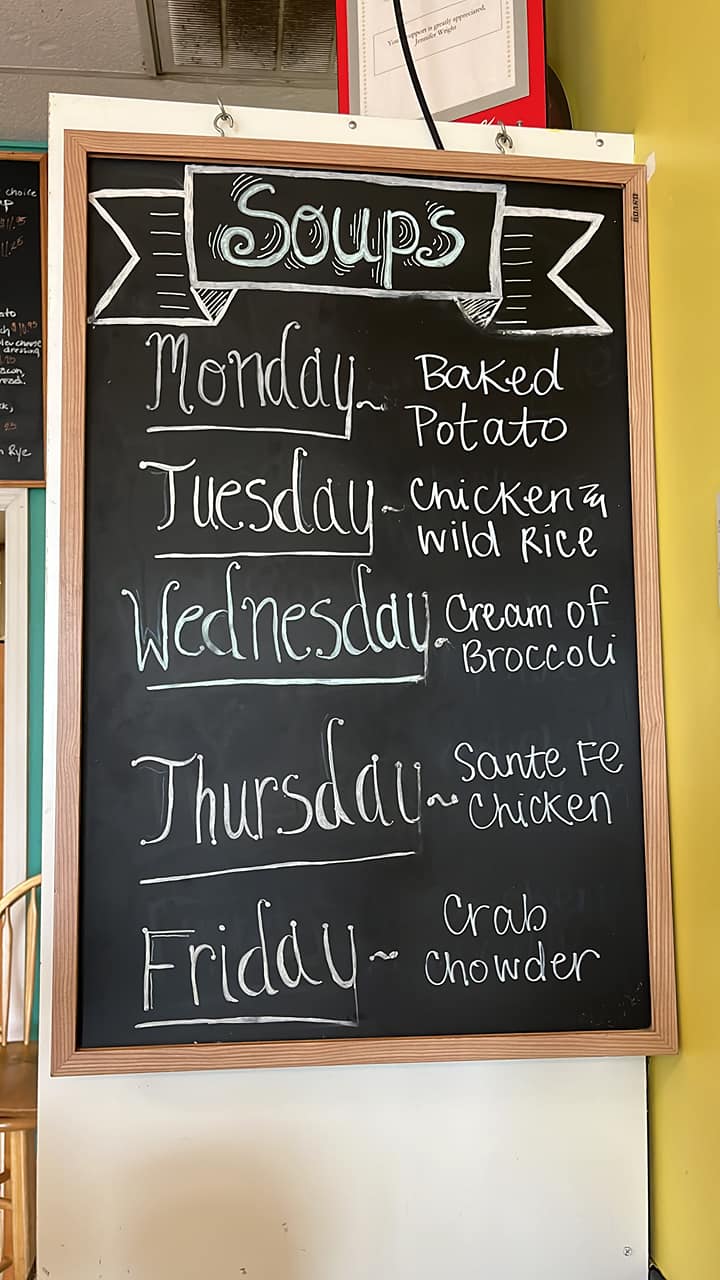 Your support is greatly appreciated,
Jennifer Wright
choice
11.25
Rye
Soups
Monday ~ Baked
Potato
Tuesday - Chicken &
Wild Rice
Wednesday - Cream of
Broccoli
Thursday ~ Sante Fe
Chicken
Friday ~ Crab
Chowder